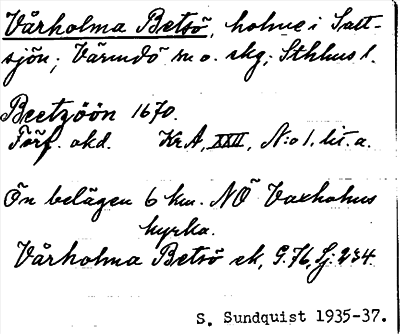 Vårholma Betsö, holme i Salt-
sjön; Värmdö m o. skg; Sthlms l.
Beetzöön 1670.
Förf. okd. KrA, XXII, N:o 1, lit. a.
Ön belägen 6 km. NÖ Vaxholms
kyrka.
Vårholma Betsö ek, G.76, Sj: 234.
S. Sundquist 1935-37.